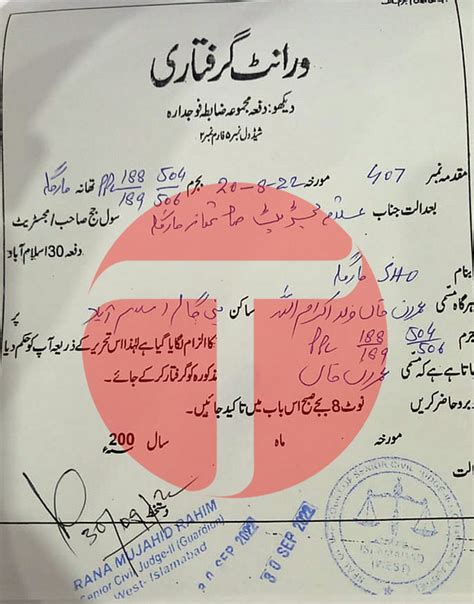 ورانٹ گرفتاری
دیکھو: دفعہ مجموعہ ضابطہ فوجداره
شیڈول نمبر ۵ فارم نمبر ۲
مقدمہ نمبر 407 مورخہ 20-8-22 بجرم 504/506 188/189 PPC تھانہ مارگلہ
بعدالت جناب علاقہ مجسٹریٹ صاحب تھانہ مارگلہ سول جج صاحب/مجسٹریٹ
دفعہ 30 اسلام آباد
بنام SHO مارگلہ
ہرگاہ مسمّی عمران خان ولد اکرام اللہ ساکن بنی گالہ اسلام آباد پر
جرم 504/506 188/189 PPC کا الزام لگایا گیا ہے لہٰذا اس تحریر کے ذریعہ آپ کو حکم دیا
جاتا ہے کہ مسمّی عمران خان مذکورہ کو گرفتار کر کے جائے۔
روبرو حاضر کریں نوٹ 8 بجے صبح اس باب میں تاکید جانیں۔
مورخہ ماہ سال 200
30/09/22
RANA MUJAHID RAHIM
Senior Civil Judge-II (Guardian)
West-Islamabad
30 SEP 2022
30 SEP 2022
SENIOR CIVIL JUDGE
ISLAMABAD